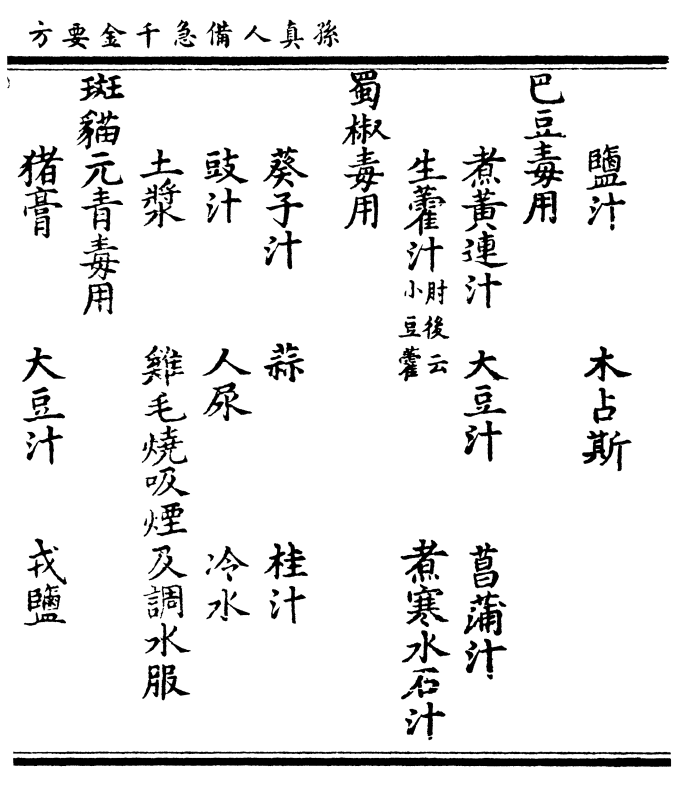 孫真人備急千金要方
鹽汁 木占斯
巴豆毒用
煮黃連汁 大豆汁 菖蒲汁
生藿汁肘後云小豆藿 煮寒水石汁
蜀椒毒用
葵子汁 蒜 桂汁
豉汁 人尿 冷水
土漿 雞毛燒吸煙及調水服
斑貓元青毒用
猪膏 大豆汁 戎鹽